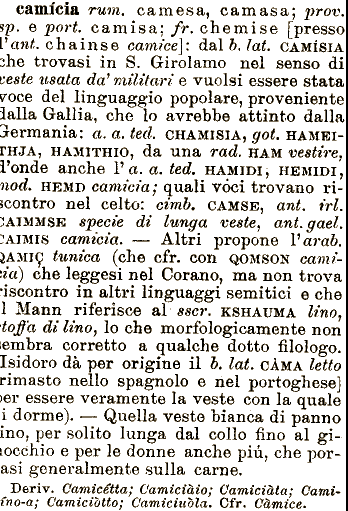 camícia rum. camesa, camasa; prov.
sp. e port. camisa; fr. chemise [presso
l'ant. chainse camice]: dal b. lat. CAMÍSIA
che trovasi in S. Girolamo nel senso di
veste usata da' militari e vuolsi essere stata
voce del linguaggio popolare, proveniente
dalla Gallia, che lo avrebbe attinto dalla
Germania: a. a. ted. CHAMISIA, got. HAMEI-
THJA, HAMITHIO, da una rad. HAM vestire,
d'onde anche l'a. a. ted. HAMIDI, HEMIDI,
mod. HEMD camicia; quali vóci trovano ri-
scontro nel celto: cimb. CAMSE, ant. irl.
CAIMMSE specie di lunga veste, ant. gael.
CAIMIS camicia. — Altri propone l'arab.
QAMIÇ tunica (che cfr. con QOMSON cami-
cia) che leggesi nel Corano, ma non trova
riscontro in altri linguaggi semitici e che
il Mann riferisce al sscr. KSHAUMA lino,
stoffa di lino, lo che morfologicamente non
sembra corretto a qualche dotto filologo.
Isidoro dà per origine il b. lat. CÀMA letto
rimasto nello spagnolo e nel portoghese}
per essere veramente la veste con la quale
si dorme). — Quella veste bianca di panno
lino, per solito lunga dal collo fino al gi-
nocchio e per le donne anche piú, che por-
tasi generalmente sulla carne.
Deriv. Camicétta; Camiciàio; Camiciàta; Cami-
cíno-a; Camiciòtto; Camiciuòla. Cfr. Càmice.